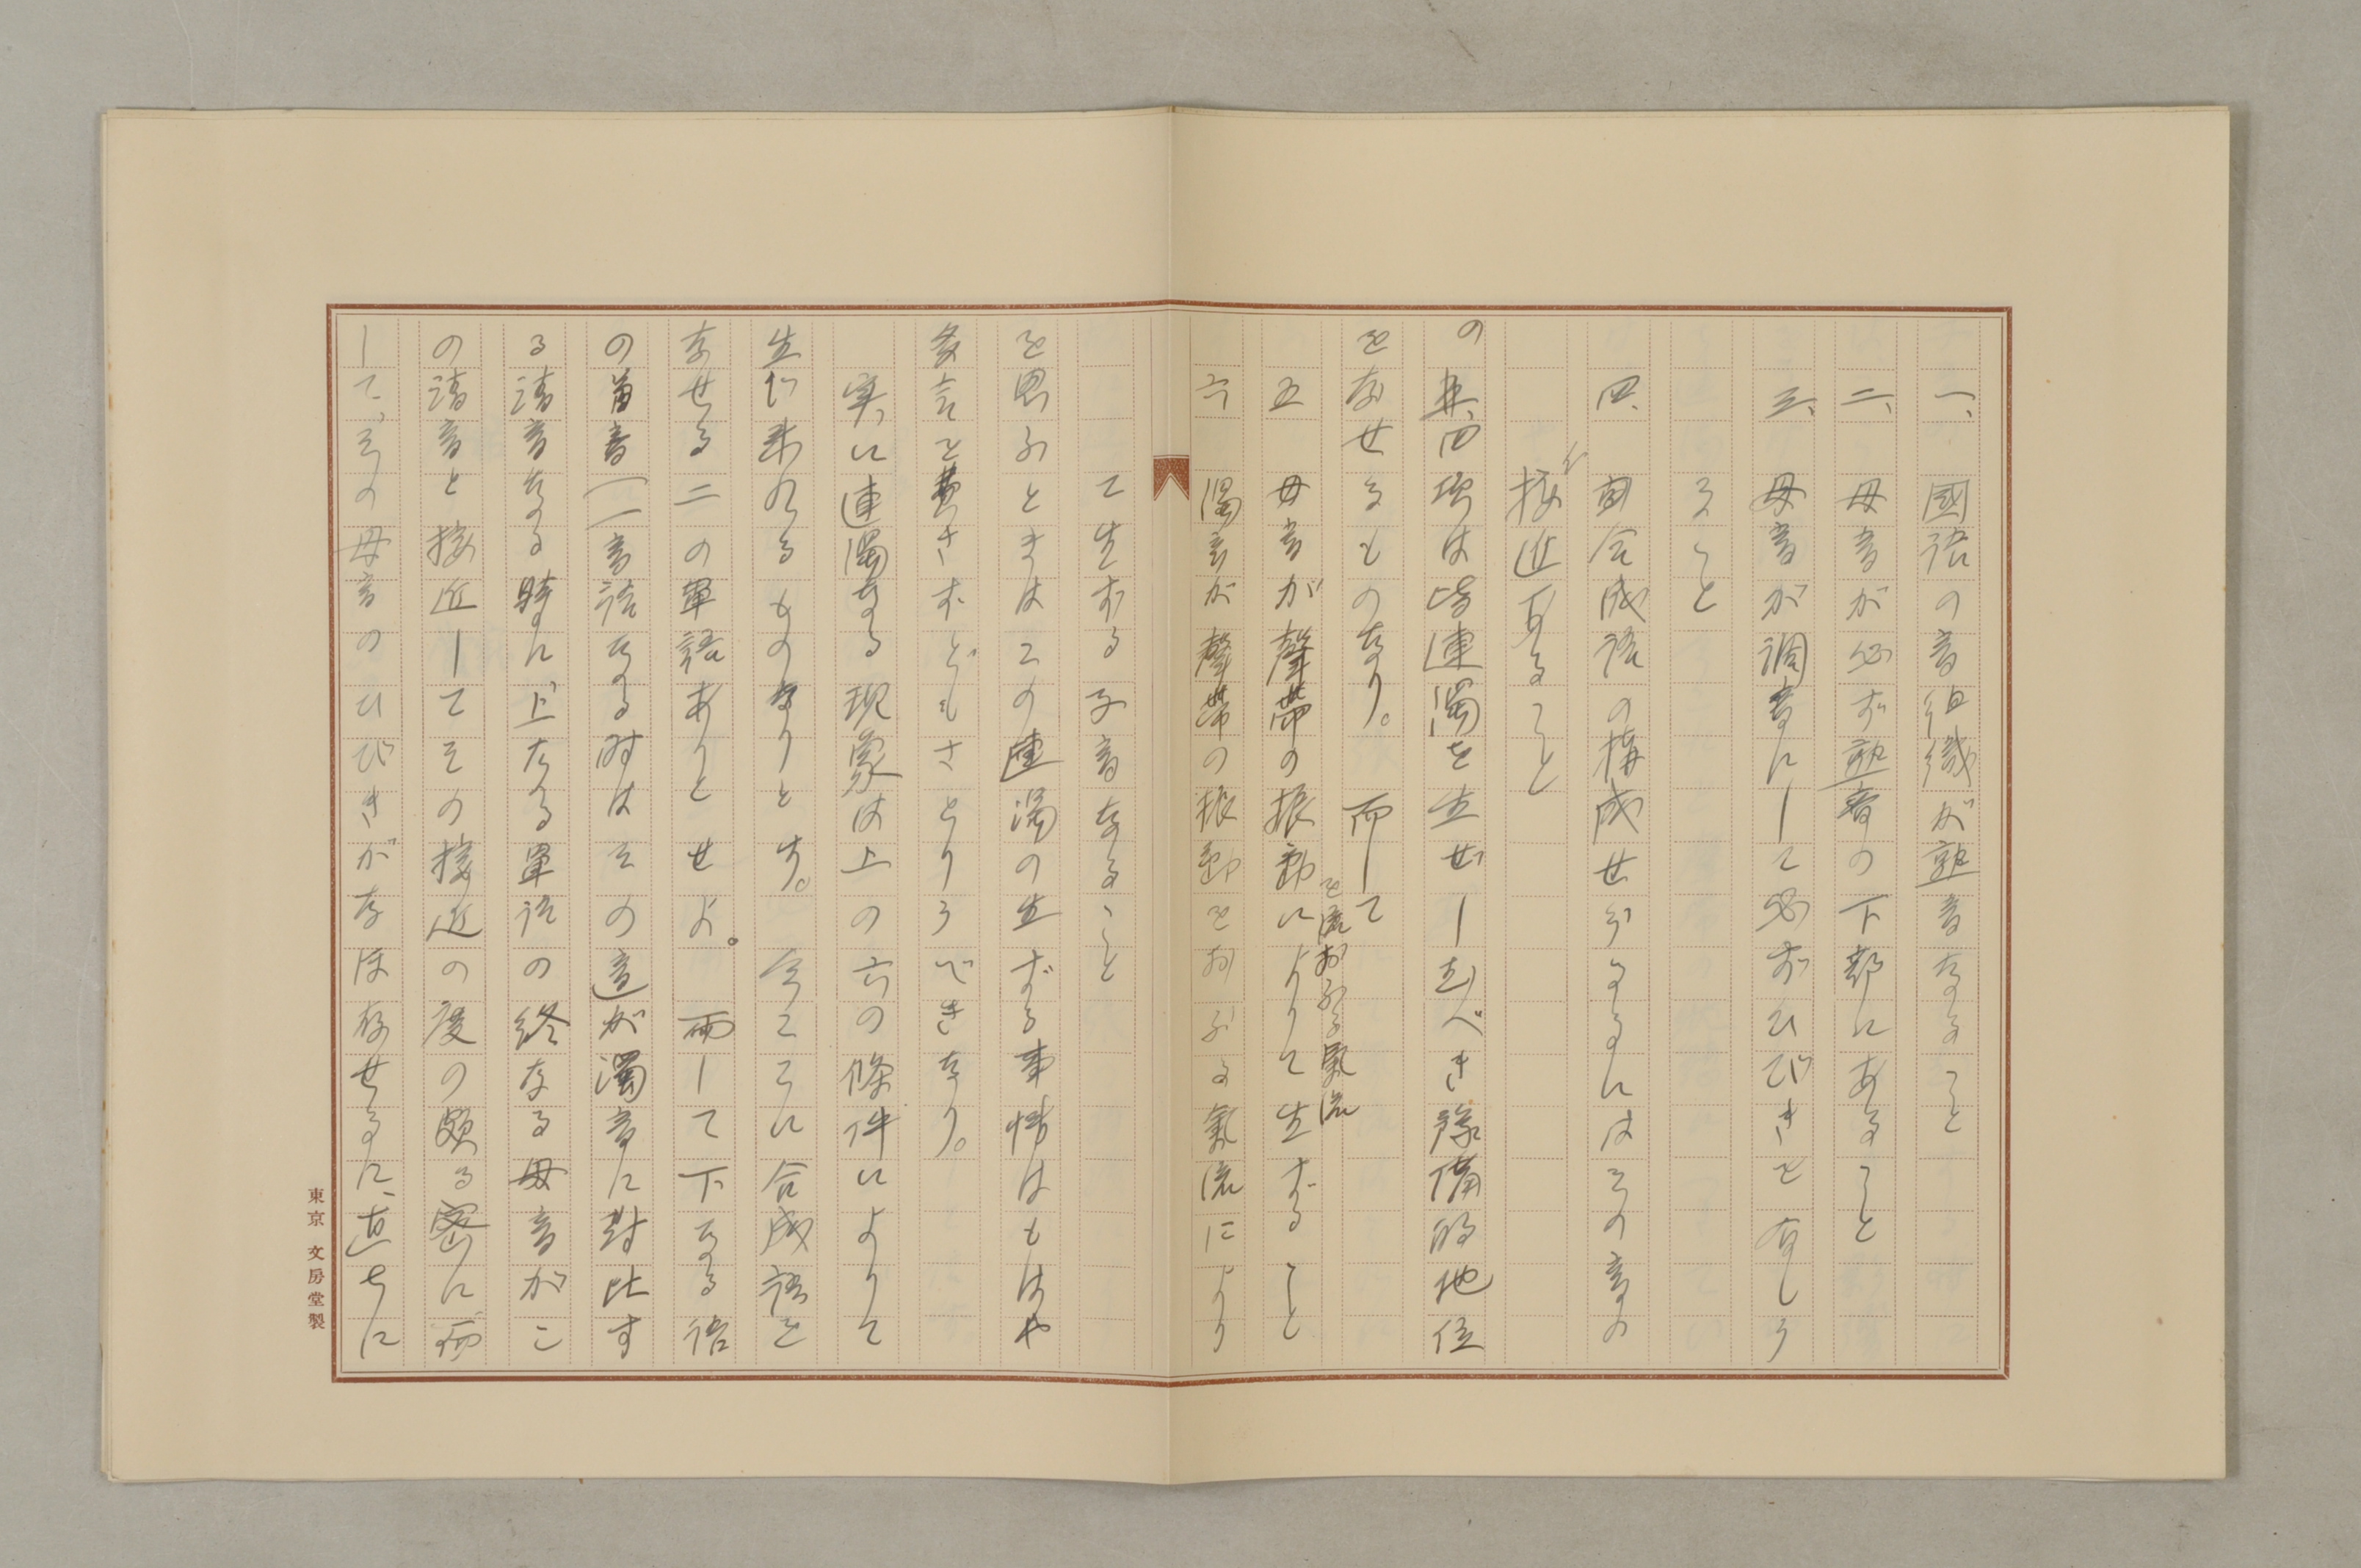 一、國語の音組織が熟音なること
二、母音が必ず熟音の下部にあること
三、母音が調音にして必ずひびきを有しう
ること
四、合成語の構成せらるるにはその音の
接近すること
の 四項は皆連濁を生ぜしむべき豫備的地位
をなせるものなり。 而して
を流おぶる氣流
五 母音が聲帶の振動によりて生ずること
六 濁音が聲帶の振動をおぶる氣流により
て生ずる子音なること
を思ふときはこの連濁の生ずる事情はもはや
多言を費さずともさとりうべきなり。
実に連濁なる現象は上の六の條件によりて
生じ来れるものなりとす。 今ここに合成語を
なせる二の單語ありとせよ。 而して下なる語
の首音(一音語なる時はその音が濁音に對比す
る清音なる時に上なる單語の終なる母音がこ
の清音と接近してその接近の度の頗る密に而
して、その母音のひびきがなほ存せるに、直ちに
東京 文房堂製